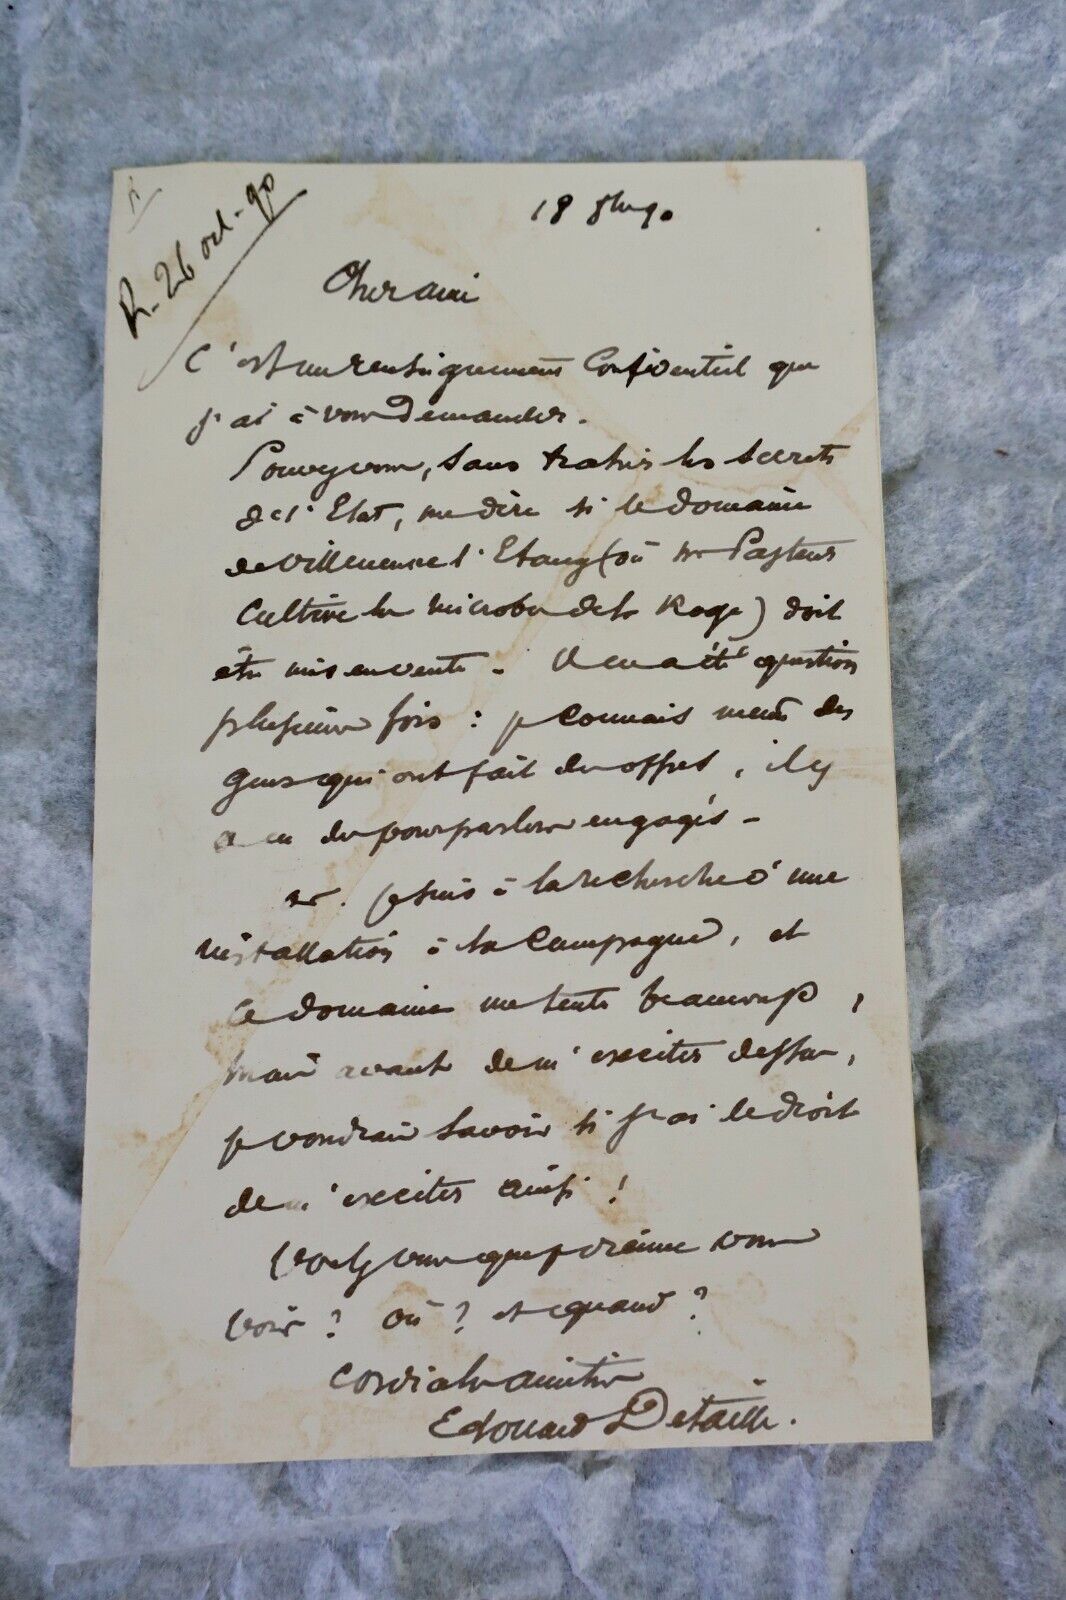 R - 26 oct - 90
18 8bre 90
Cher ami
C'est un renseignement confidentiel que
j'ai à vous demander.
Pouvez vous, sans trahir les secrets
de l'Etat, me dire si le domaine
de Villeneuve l'Etang (où Mr Pasteur
cultive le microbe de la Rage) doit
être mis en vente - Il en a été question
plusieurs fois : je connais même des
gens qui ont fait des offres, il y
a eu des pourparlers engagés -
Je suis à la recherche d'une
installation à la Campagne, et
ce domaine me tente beaucoup,
mais avant de m'exciter dessus,
je voudrais savoir si j'ai le droit
de m'exciter ainsi !
Voulez vous que je vienne vous
voir ? où ? et quand ?
Cordiales amitiés
Edouard Detaille.